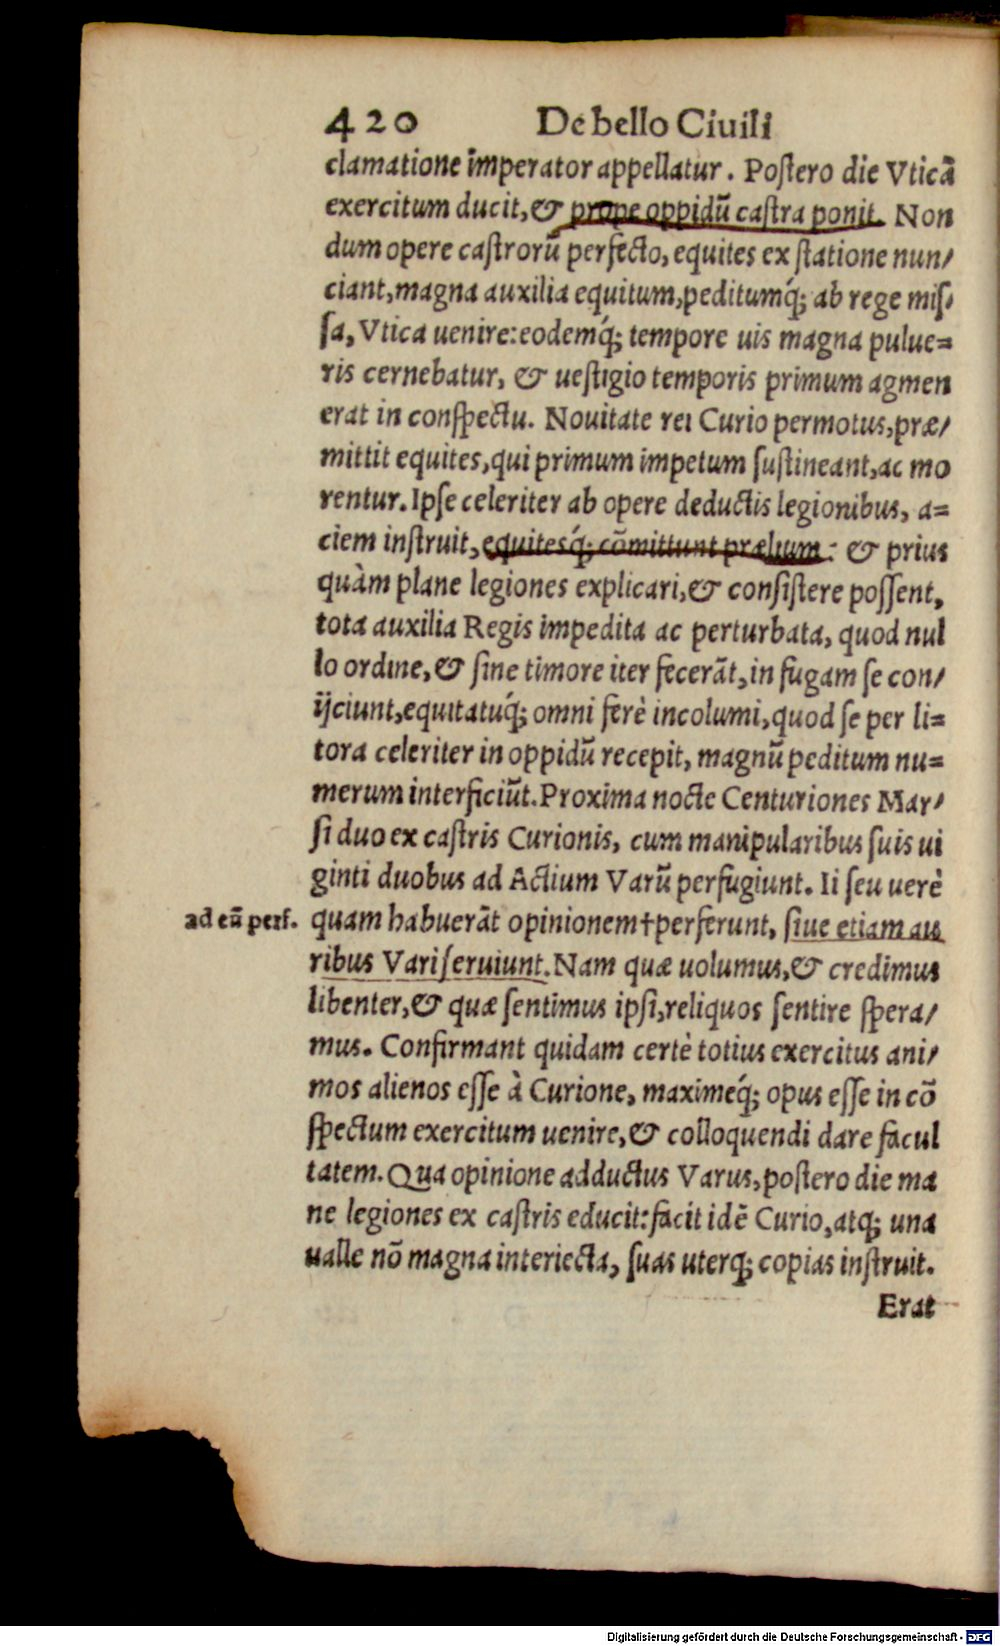 420 De bello Ciuili
clamatione imperator appellatur. Postero die Vticã
exercitum ducit, & prope oppidũ castra ponit. Non
dum opere castrorũ perfecto, equites ex statione nun/
ciant, magna auxilia equitum, peditumq́; ab rege mis/
sa, Vtica uenire: eodemq́; tempore uis magna pulue=
ris cernebatur, & uestigio temporis primum agmen
erat in conspectu. Nouitate rei Curio permotus, præ/
mittit equites, qui primum impetum sustineant, ac mo
rentur. Ipse celeriter ab opere deductis legionibus, a=
ciem instruit, equitesq́; cõmittunt prælium: & prius
quàm plane legiones explicari, & consistere possent,
tota auxilia Regis impedita ac perturbata, quod nul
lo ordine, & sine timore iter fecerãt, in fugam se con/
ijciunt, equitatuq́; omni ferè incolumi, quod se per li=
tora celeriter in oppidũ recepit, magnũ peditum nu=
merum interficiũt. Proxima nocte Centuriones Mar/
si duo ex castris Curionis, cum manipularibus suis ui
ginti duobus ad Actium Varũ perfugiunt. Ii seu uerè
ad eũ perf. quam habuerãt opinionem†perferunt, siue etiam au
ribus Vari seruiunt. Nam quæ uolumus, & credimus
libenter, & quæ sentimus ipsi, reliquos sentire spera/
mus. Confirmant quidam certè totius exercitus ani/
mos alienos esse à Curione, maximeq́; opus esse in cõ
spectum exercitum uenire, & colloquendi dare facul
tatem. Qua opinione adductus Varus, postero die ma
ne legiones ex castris educit: facit idẽ Curio, atq; una
ualle nõ magna interiecta, suas uterq; copias instruit.
Erat
Digitalisierung gefördert durch die Deutsche Forschungsgemeinschaft - DFG